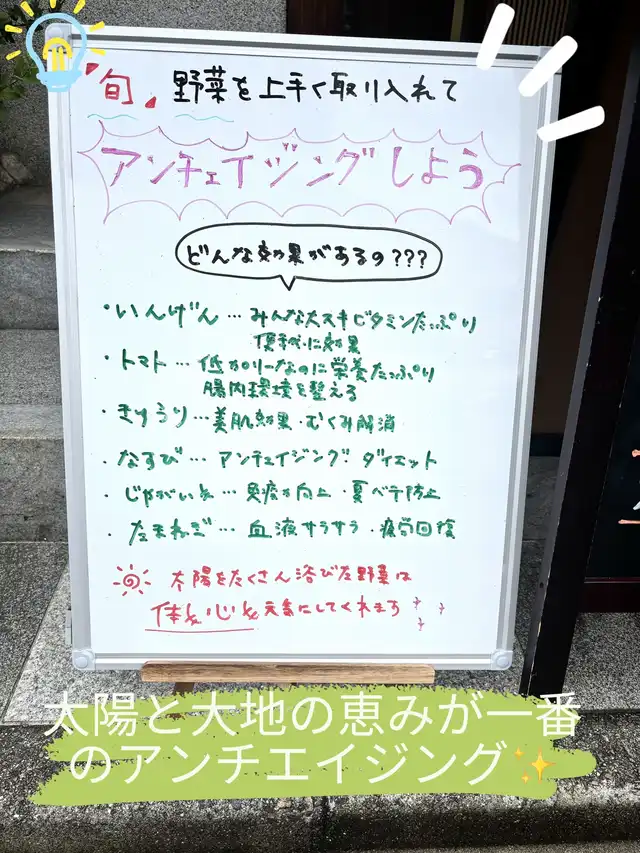 旬 野菜を上手く取り入れて
アンチェイジングしよう
どんな効果があるの???
・いんげん…みんな大スキビタミンたっぷり
便秘に効果
・トマト…低カロリーなのに栄養たっぷり
腸内環境を整える
・きゅうり…美肌効果・むくみ解消
・なすび…アンチェイジング ダイエット
・じゃがいも…免疫力向上・夏バテ防止
・たまねぎ…血液サラサラ・疲労回復
太陽をたくさん浴びた野菜は
体も心も元気にしてくれます
太陽と大地の恵みが一番
のアンチエイジング✨